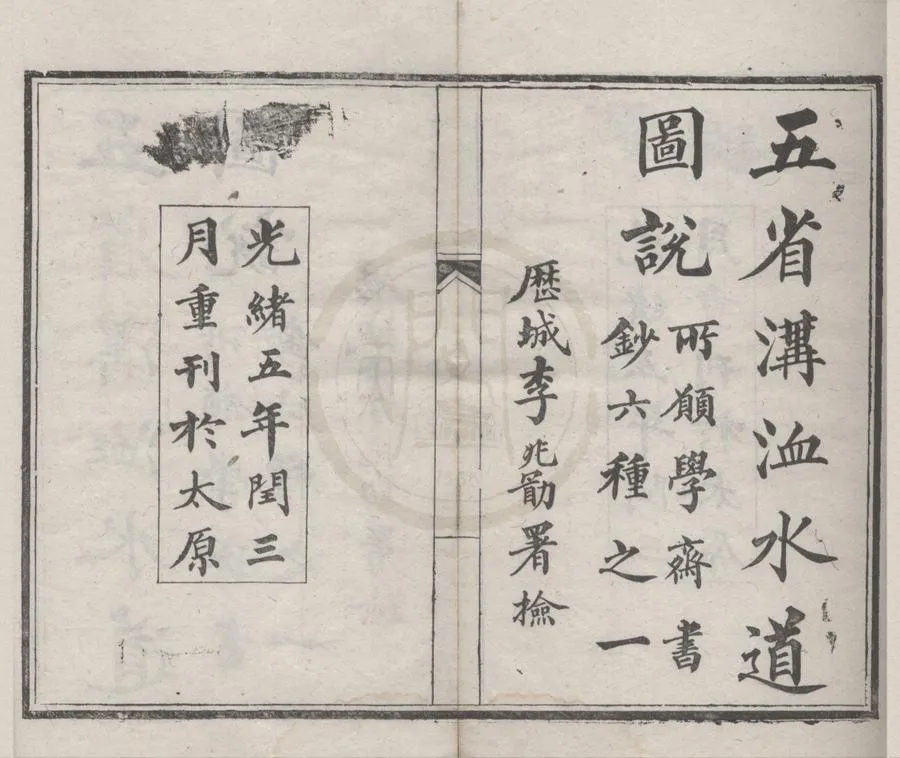 五省溝洫水道
圖說
所願學齋書
鈔六種之一
歷城李兆勖署檢
光緒五年閏三
月重刊於太原